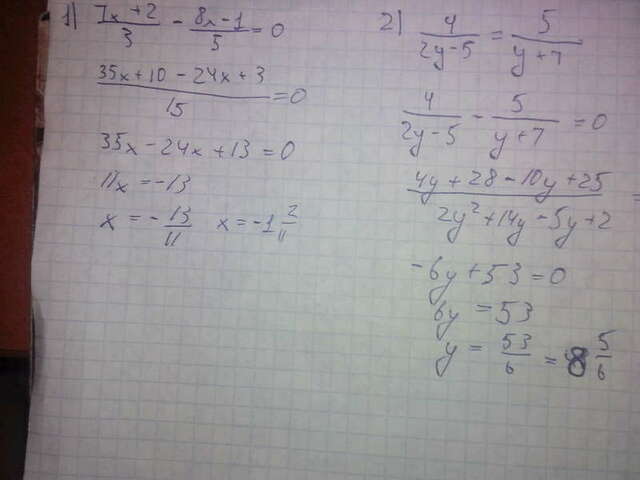 1) (7x + 2)/3 - (8x - 1)/5 = 0
(35x + 10 - 24x + 3)/15 = 0
35x - 24x + 13 = 0
11x = -13
x = -13/11 x = -1 2/11
2) 4/(2y-5) = 5/(y+7)
4/(2y-5) - 5/(y+7) = 0
(4y + 28 - 10y + 25)/(2y² + 14y - 5y + 2) =
-6y + 53 = 0
6y = 53
y = 53/6 = 8 5/6